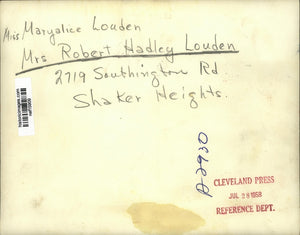 Miss Maryalice Louden
Mrs Robert Hadley Louden
2719 Southington Rd
Shaker Heights.
historicimages.com
CLEVELAND PRESS
JUL 28 1958
REFERENCE DEPT.